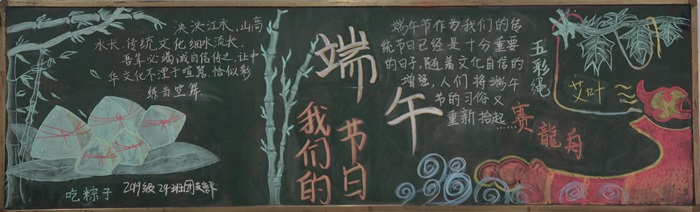 泱泱江水、山高
水长、传统文化细水流长。
吾辈必竭诚自信传之,让中
华文化不湮于喧嚣,恰似彩
练当空舞
吃粽子
24班团支部
我们的
节日
端
午
端午节作为我们的传
统节日已经是十分重要
的日子,随着文化自信的
增强,人们将端午
节的习俗又
重新拾起……
赛龍舟
五彩绳
艾叶